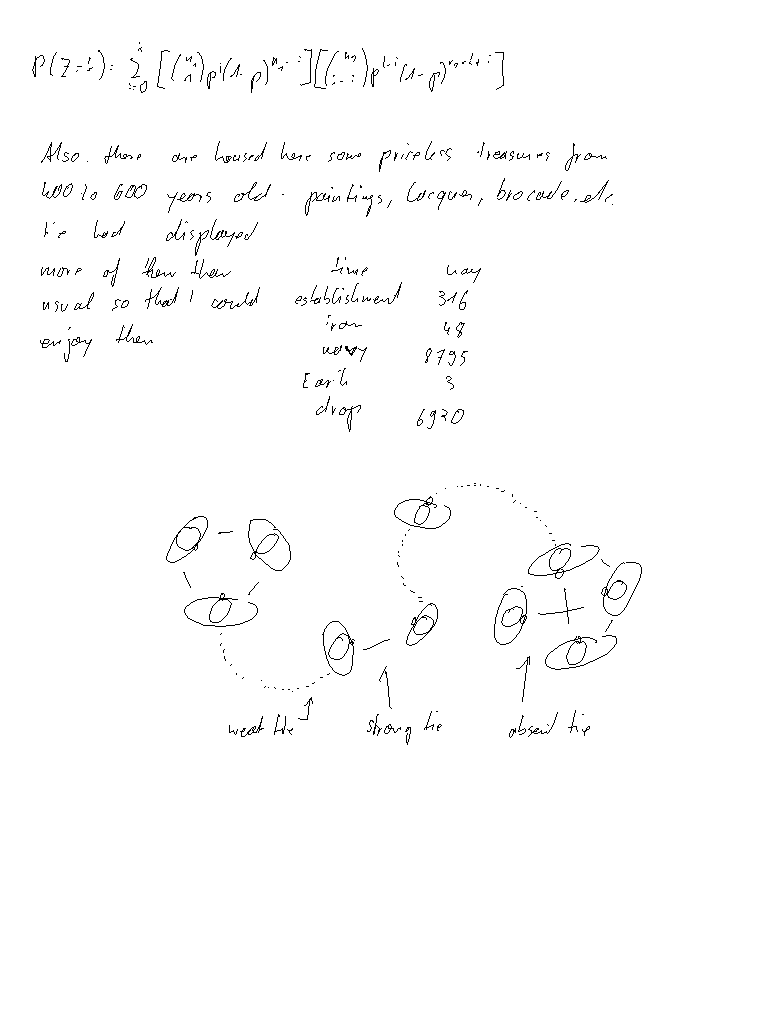 P(Z=k)= \sum_{i=0}^{k} [\binom{n_1}{i} p^i (1-p)^{n_1-i}] [\binom{n_2}{k-i} p^{k-i} (1-p)^{n_2-k+i}]
Also. there are housed here some priceless treasures from
400 to 600 years old - paintings, lacquer, brocade, etc.
He had displayed
more of them than
usual so that I could
enjoy them
time way
establishment 316
iron 48
navy 8795
Earth 3
drop 6920
weak tie strong tie absent tie